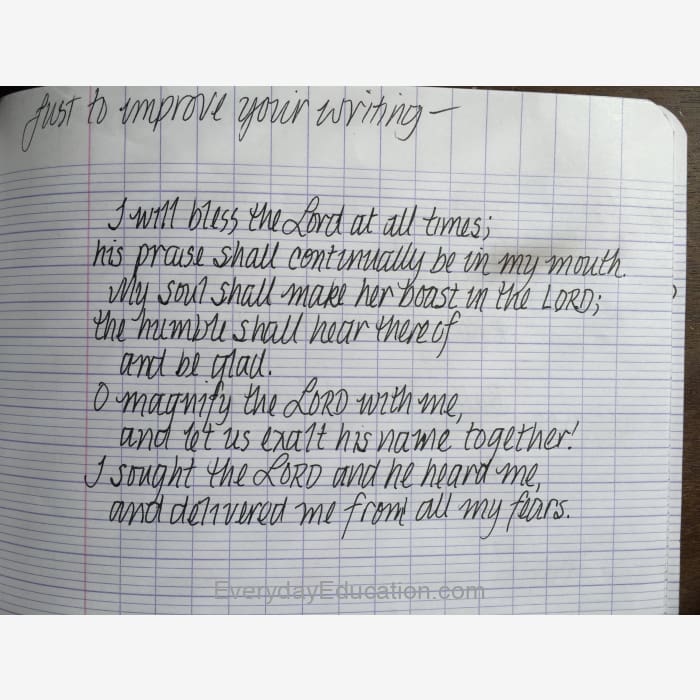 Just to improve your writing —
I will bless the Lord at all times;
his praise shall continually be in my mouth.
My soul shall make her boast in the LORD;
the humble shall hear thereof
and be glad.
O magnify the LORD with me,
and let us exalt his name together!
I sought the LORD and he heard me,
and delivered me from all my fears.
EverydayEducation.com